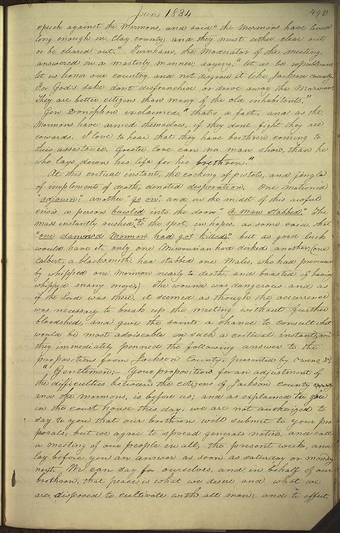 June 1834
speech against the Mormons, and said "the Mormons have lived
long enough in Clay county; and they must either clear out
or be cleared out." Turnham, the Moderator of the meeting,
answered in a masterly manner, saying, "let us be republicans
let us honor our country, and not disgrace it like Jackson county
For God's sake don't disfranchise or drive away the Mormons
They are better citizens than many of the old inhabitants."
Gen. Doniphan exclaimed, "that's a fact, and as the
Mormons have armed themselves, if they don't fight they are
cowards. I love to hear that they have brethren coming to
their assistance. Greater love can no man show, than he
who lays down his life for his brethren."
At this critical instant, the cocking of pistols, and jingle
of implements of death, denoted desperation. One motioned
"adjourn," another "go on," and in the midst of this awful
crisis a person bawled into the door "a man stabbed." The
mass instantly rushed to the spot, in hopes, as some said, that
"one damn'd Mormon had got killed," but as good luck
would have it, only one Missourian had dirked another, (one
Calbert, a blacksmith, had stabbed one Males, who had previously
whipped one Mormon nearly to death, and boasted of having
whipped many more). The wound was dangerous and as
if the Lord was there, it seemed as though the occurrence
was necessary to break up the meeting without further
bloodshed, and give the Saints a chance to consult what
would be most advisable in such a critical instant, and
they immediately penned the following answer to the
propositions from Jackson County, presented by Owens &c
"Gentlemen:— Your propositions for an adjustment of
the difficulties between the citizens of Jackson county
and the Mormons, is before us; and as explained to you
in the court house this day, we are not authorized to
say to you that our brethren will submit to your pro-
posals; but we agree to spread general notice, and call
a meeting of our people in all, the present week, and
lay before you an answer as soon as Saturday or Monday
next. We can say for ourselves, and in behalf of our
brethren, that peace is what we desire and what we
are disposed to cultivate with all men; and to effect